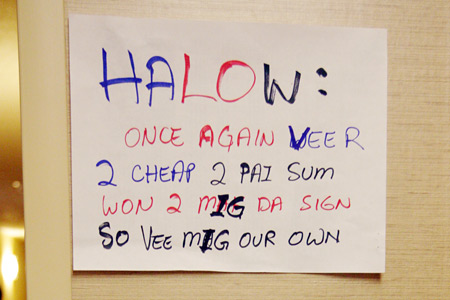 HALOW:
ONCE AGAIN VEER
2 CHEAP 2 PAI SUM
WON 2 MIG DA SIGN
SO VEE MIG OUR OWN